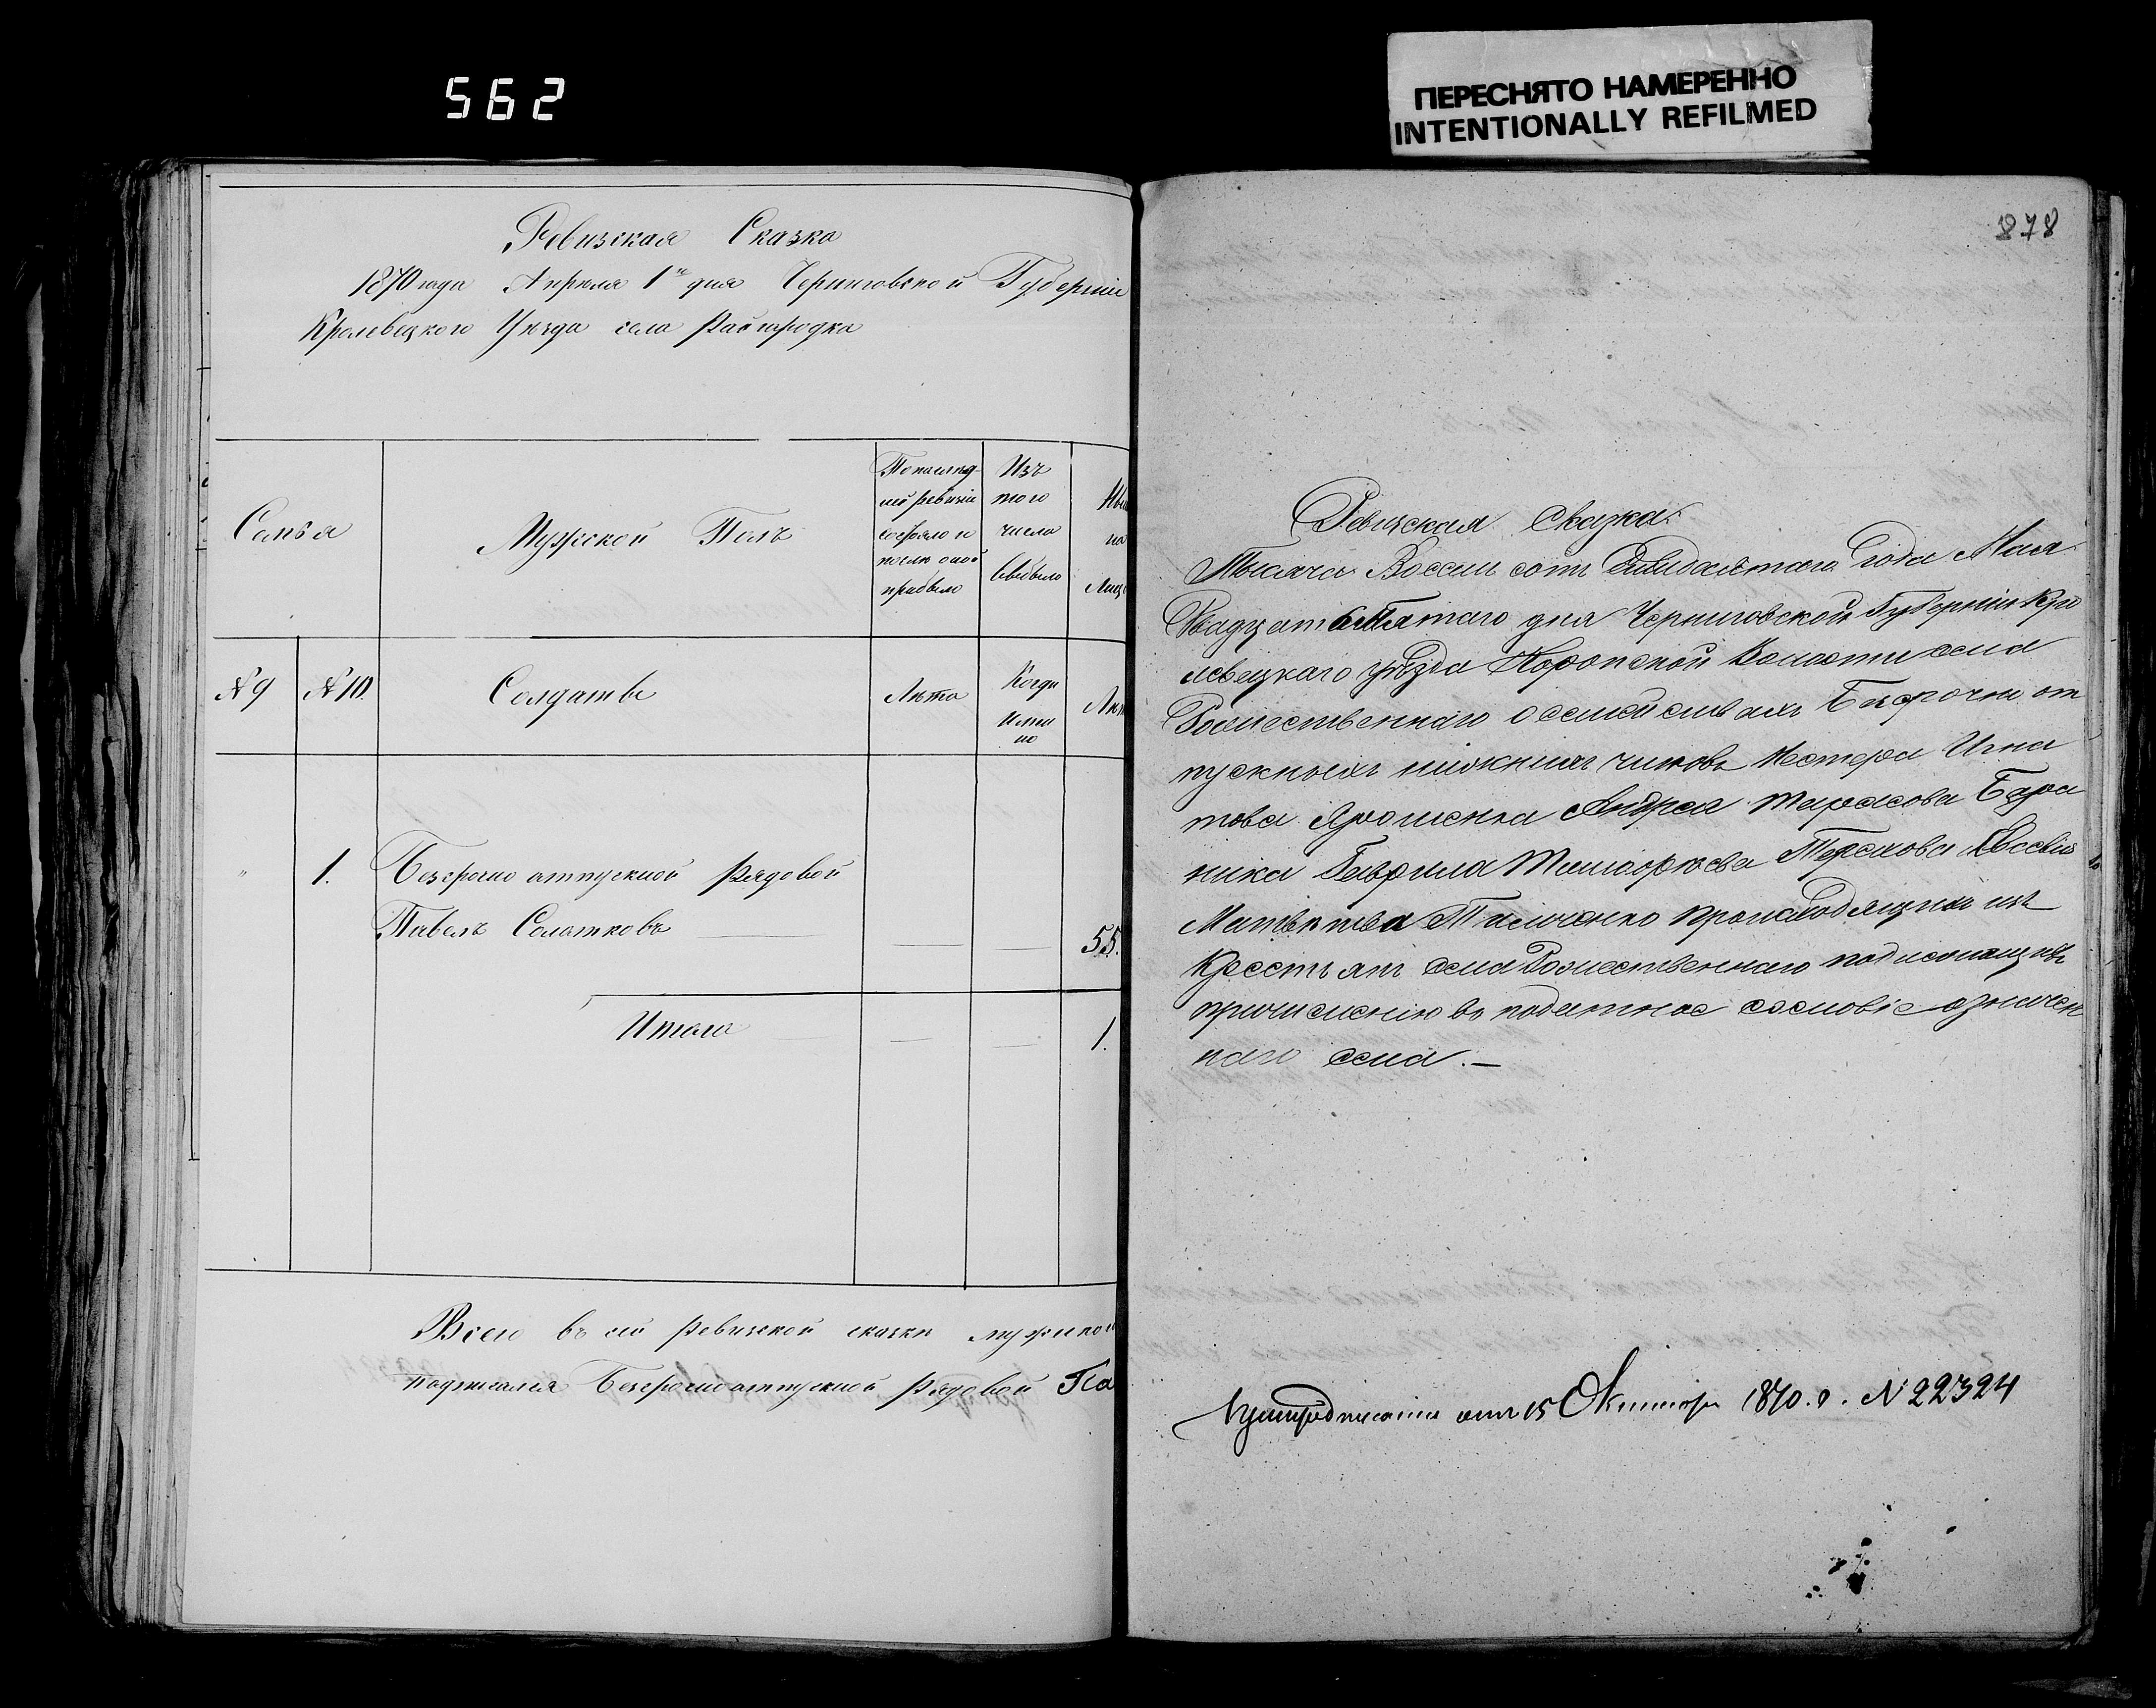 562
ПЕРЕСНЯТО НАМЕРЕННО
INTENTIONALLY REFILMED
Ревизская Сказка
1870 года Апреля 1го дня Черниговской Губерніи
Кролевецкого Уезда села Райгородка
Семья
Мужской Полъ
По послед-
ней ревизіи
состояло и
после оной
прибыло
Изъ
того
числа
выбыло
Ны
на
Лицо
№ 9
№ 10.
Солдаты
Лета
Когда
имен
но
Лет
"
1.
Безсрочно отпускной рядовой
Павелъ Солотковъ
55.
Итого
1.
Всего въ сей ревизской сказки мужско
подписался Безсрочноотпускной рядовой Па
878
Ревизская Сказка
Тысяча Восемь сотъ Семидесятого Года Мая
Двадцать Пятаго дня Черниговской Губерніи Кро
левецкаго уезда Коропской Волости села
Рожественнаго о семействахъ Безсрочно от
пускныхъ нижнихъ чиновъ Нестера Игна
това Ярошенка Андрея Тарасова Бара
ника Гаврила Тимофеева Терехова
Матвеева происходящихъ изъ
Крестьянъ села Рожественнаго подлежащихъ
причисленію въ податное сословіе означен
наго села. —
отъ 15 Октября 1870. г. № 22324